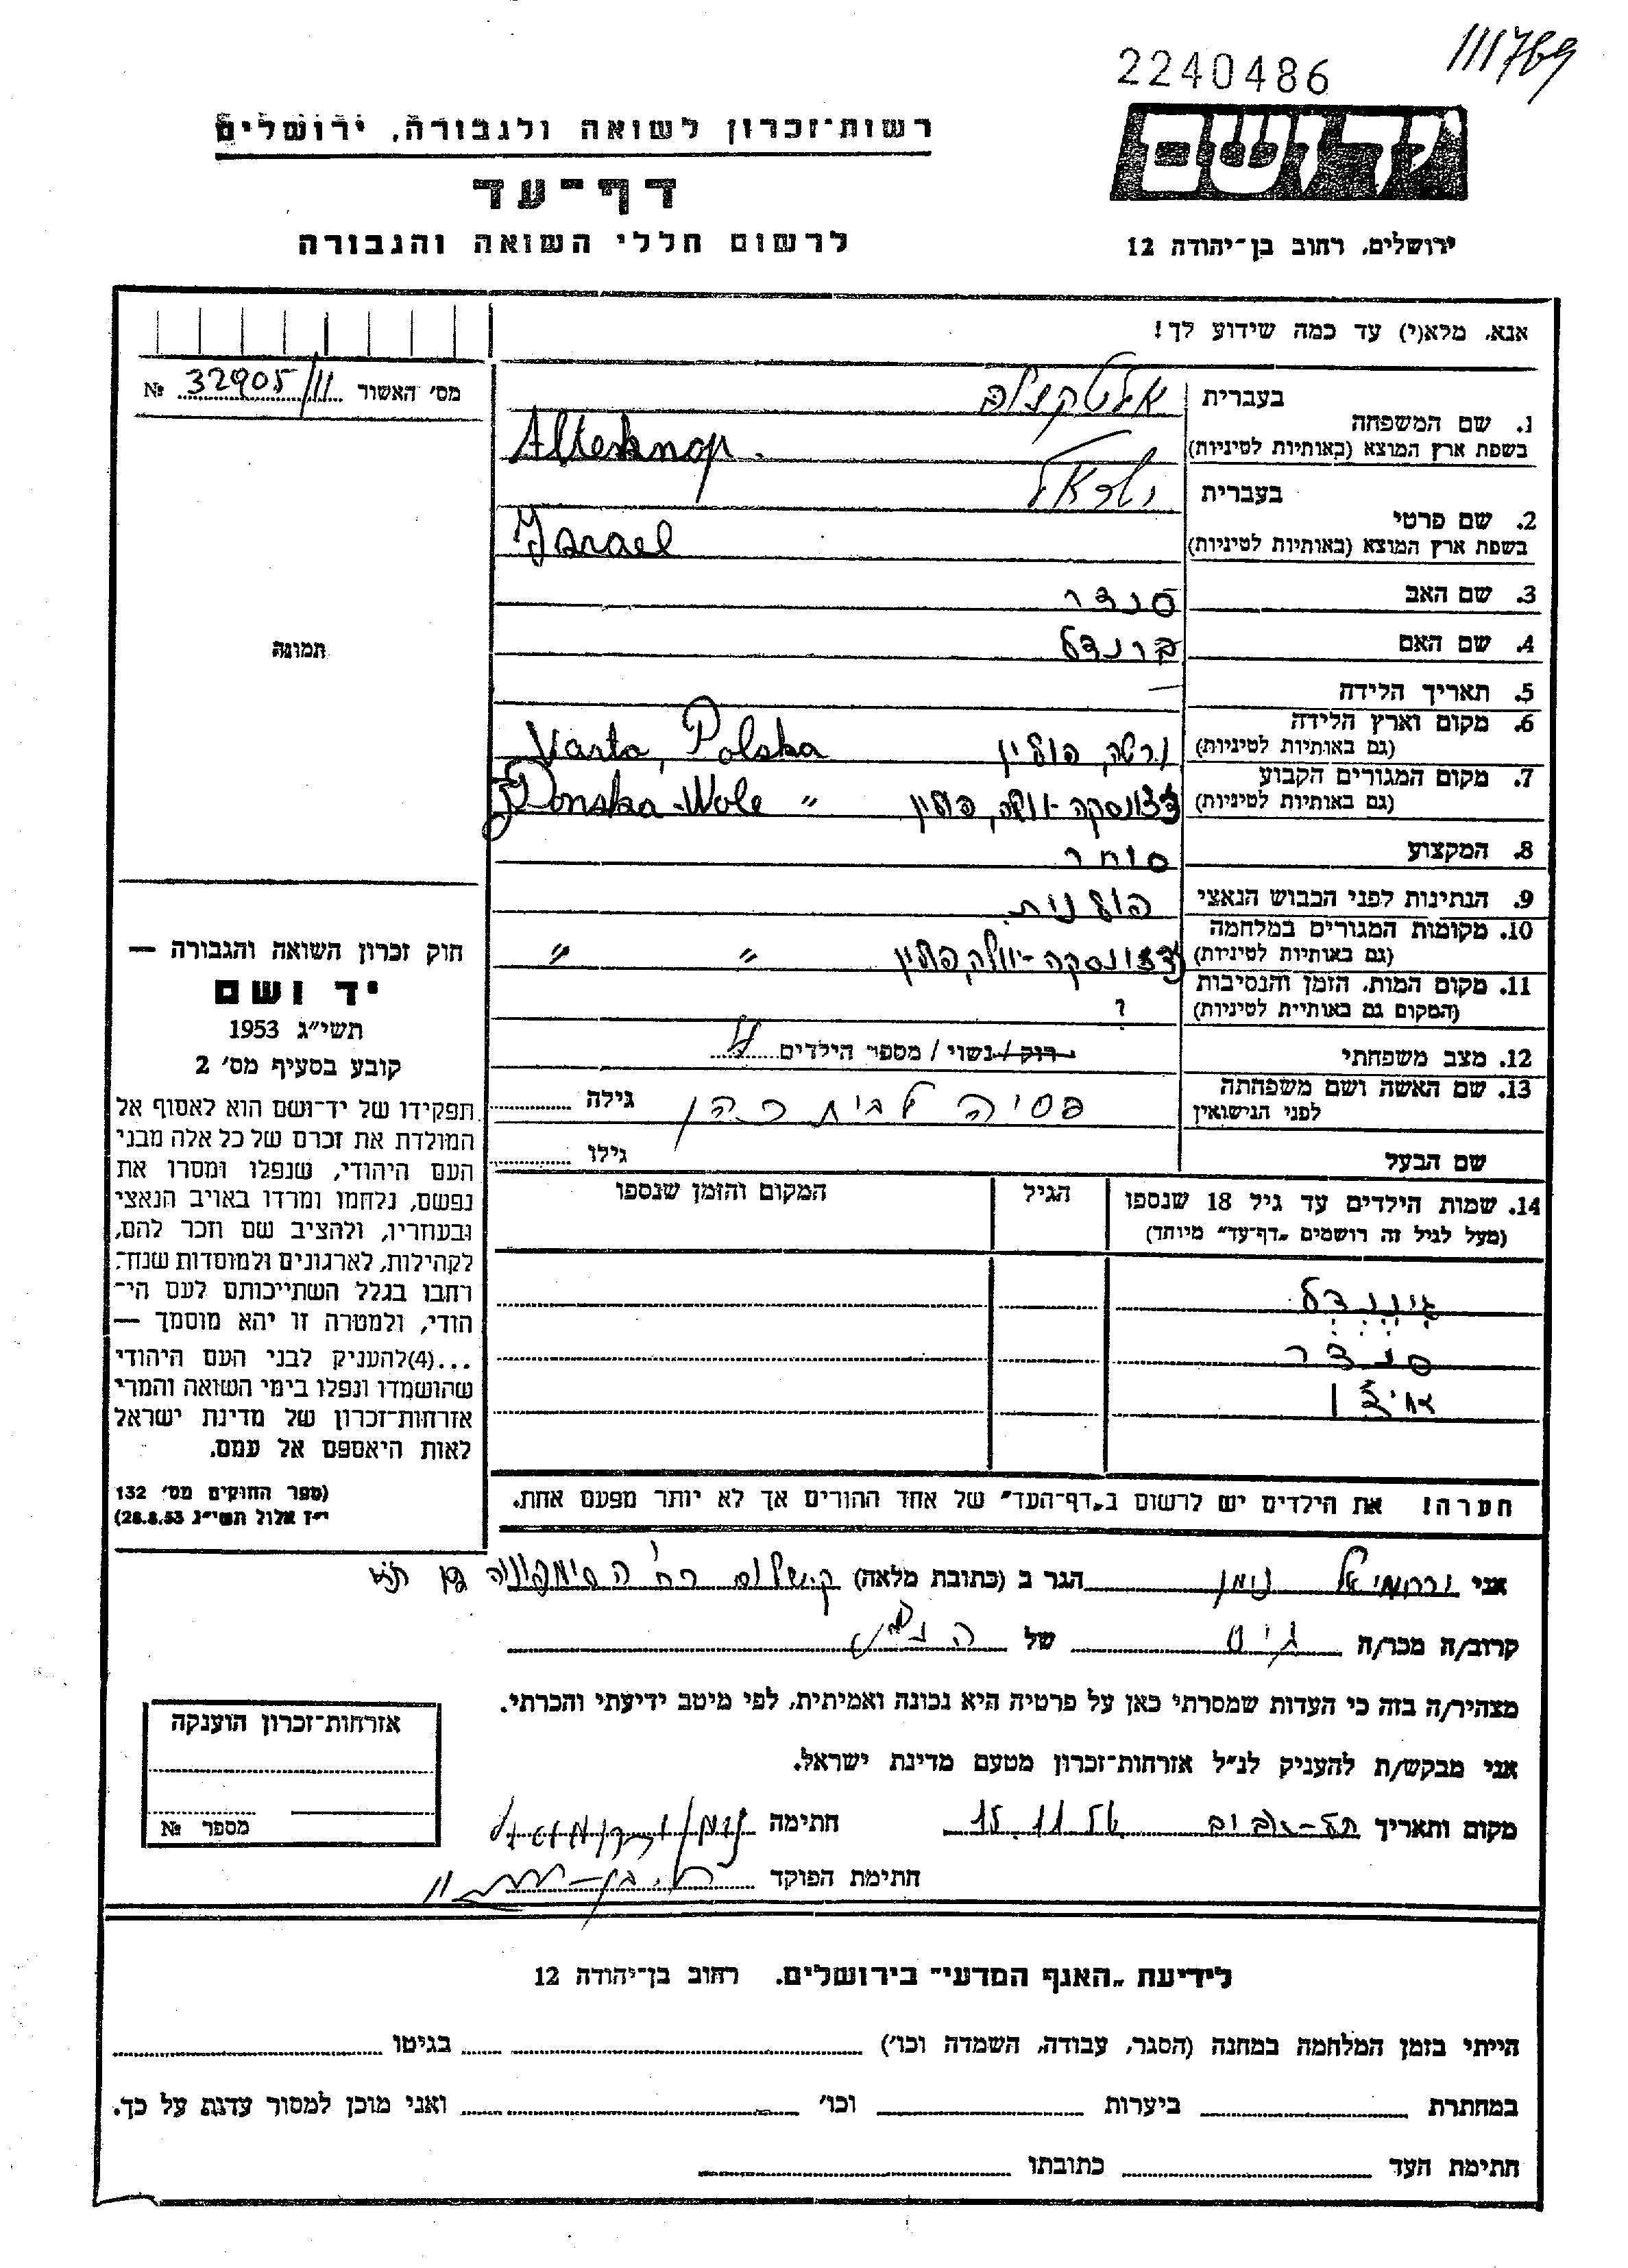 111769
2240486
רשות־זכרון לשואה ולגבורה, ירושלים
דף־עד
לרשום חללי השואה והגבורה
יד ושם
ירושלים, רחוב בן־יהודה 12
אנא, מלא(י) עד כמה שידוע לך!
מס׳ האשור 32905/11 №
1. שם המשפחה
בעברית
בשפת ארץ המוצא (באותיות לטיניות) Alterknop.
2. שם פרטי
בעברית ישראל
בשפת ארץ המוצא (באותיות לטיניות) Israel
3. שם האב סנדר
4. שם האם ברנדל
תמונה
5. תאריך הלידה —
6. מקום וארץ הלידה
(גם באותיות לטיניות) פולין Varta, Polska
7. מקום המגורים הקבוע
(גם באותיות לטיניות) זדונסקה-וולה, פולין Zdonska-Wole "
8. המקצוע סוחר
9. הנתינות לפני הכבוש הנאצי פולנית
10. מקומות המגורים במלחמה
(גם באותיות לטיניות) זדונסקה-וולה, פולין " " "
11. מקום המות, הזמן והנסיבות
(המקום גם באותיית לטיניות) ?
12. מצב משפחתי רוק / נשוי / מספר הילדים
13. שם האשה ושם משפחתה
לפני הנישואין פסיה לבית כהן גילה
שם הבעל גילו
14. שמות הילדים עד גיל 18 שנספו
(מעל לגיל זה רושמים „דף־עד״ מיוחד)
הגיל
המקום והזמן שנספו
גינגדל
סנדר
הערה! את הילדים יש לרשום ב„דף־העד״ של אחד ההורים אך לא יותר מפעם אחת.
חוק זכרון השואה והגבורה —
יד ושם
תשי״ג 1953
קובע בסעיף מס׳ 2
תפקידו של יד־ושם הוא לאסוף אל
המולדת את זכרם של כל אלה מבני
העם היהודי, שנפלו ומסרו את
נפשם, נלחמו ומרדו באויב הנאצי
ובעוזריו, ולהציב שם וזכר להם,
לקהילות, לארגונים ולמוסדות שנח־
רחבו בגלל השתייכותם לעם הי־
הודי, ולמטרה זו יהא מוסמך —
...(4)להעניק לבני העם היהודי
שהושמדו ונפלו בימי השואה והמרי
אזרחות־זכרון של מדינת ישראל
לאות היאספם אל עמם.
(ספר החוקים מס׳ 132
י״ז אלול תשי״ג 28.8.53)
אני ירחמיאל נוימן הגר ב (כתובת מלאה)
קרוב/ה מכר/ה גיס של
מצהיר/ה בזה כי העדות שמסרתי כאן על פרטיה היא נכונה ואמיתית, לפי מיטב ידיעתי והכרתי.
אני מבקש/ת להעניק לנ״ל אזרחות־זכרון מטעם מדינת ישראל.
מקום ותאריך תל-אביב 15.11.56 חתימה
חתימת הפוקד
אזרחות־זכרון הוענקה
מספר №
לידיעת „האגף המדעי״ בירושלים, רחוב בן־יהודה 12
הייתי בזמן המלחמה במחנה (הסגר, עבודה, השמדה וכו׳) בגיטו
במחתרת ביערות וכו׳ ואני מוכן למסור עדות על כך.
חתימת העד כתובתו